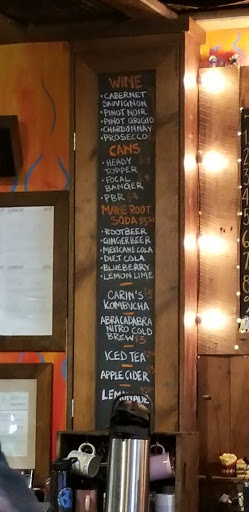 WINE
• CABERNET
SAUVIGNON
• PINOT NOIR
• PINOT GRIGIO
• CHARDONNAY
• PROSECCO
CANS
• HEADY
TOPPER
• FOCAL
BANGER
• PBR
MAINE ROOT
SODA
• ROOTBEER
• GINGERBEER
• MEXICANE COLA
• DIET COLA
• BLUEBERRY
• LEMON LIME
CARIN'S
KOMBUCHA $5
ABRACADABRA
NITRO COLD
BREW $5
ICED TEA
APPLE CIDER
LEMONADE